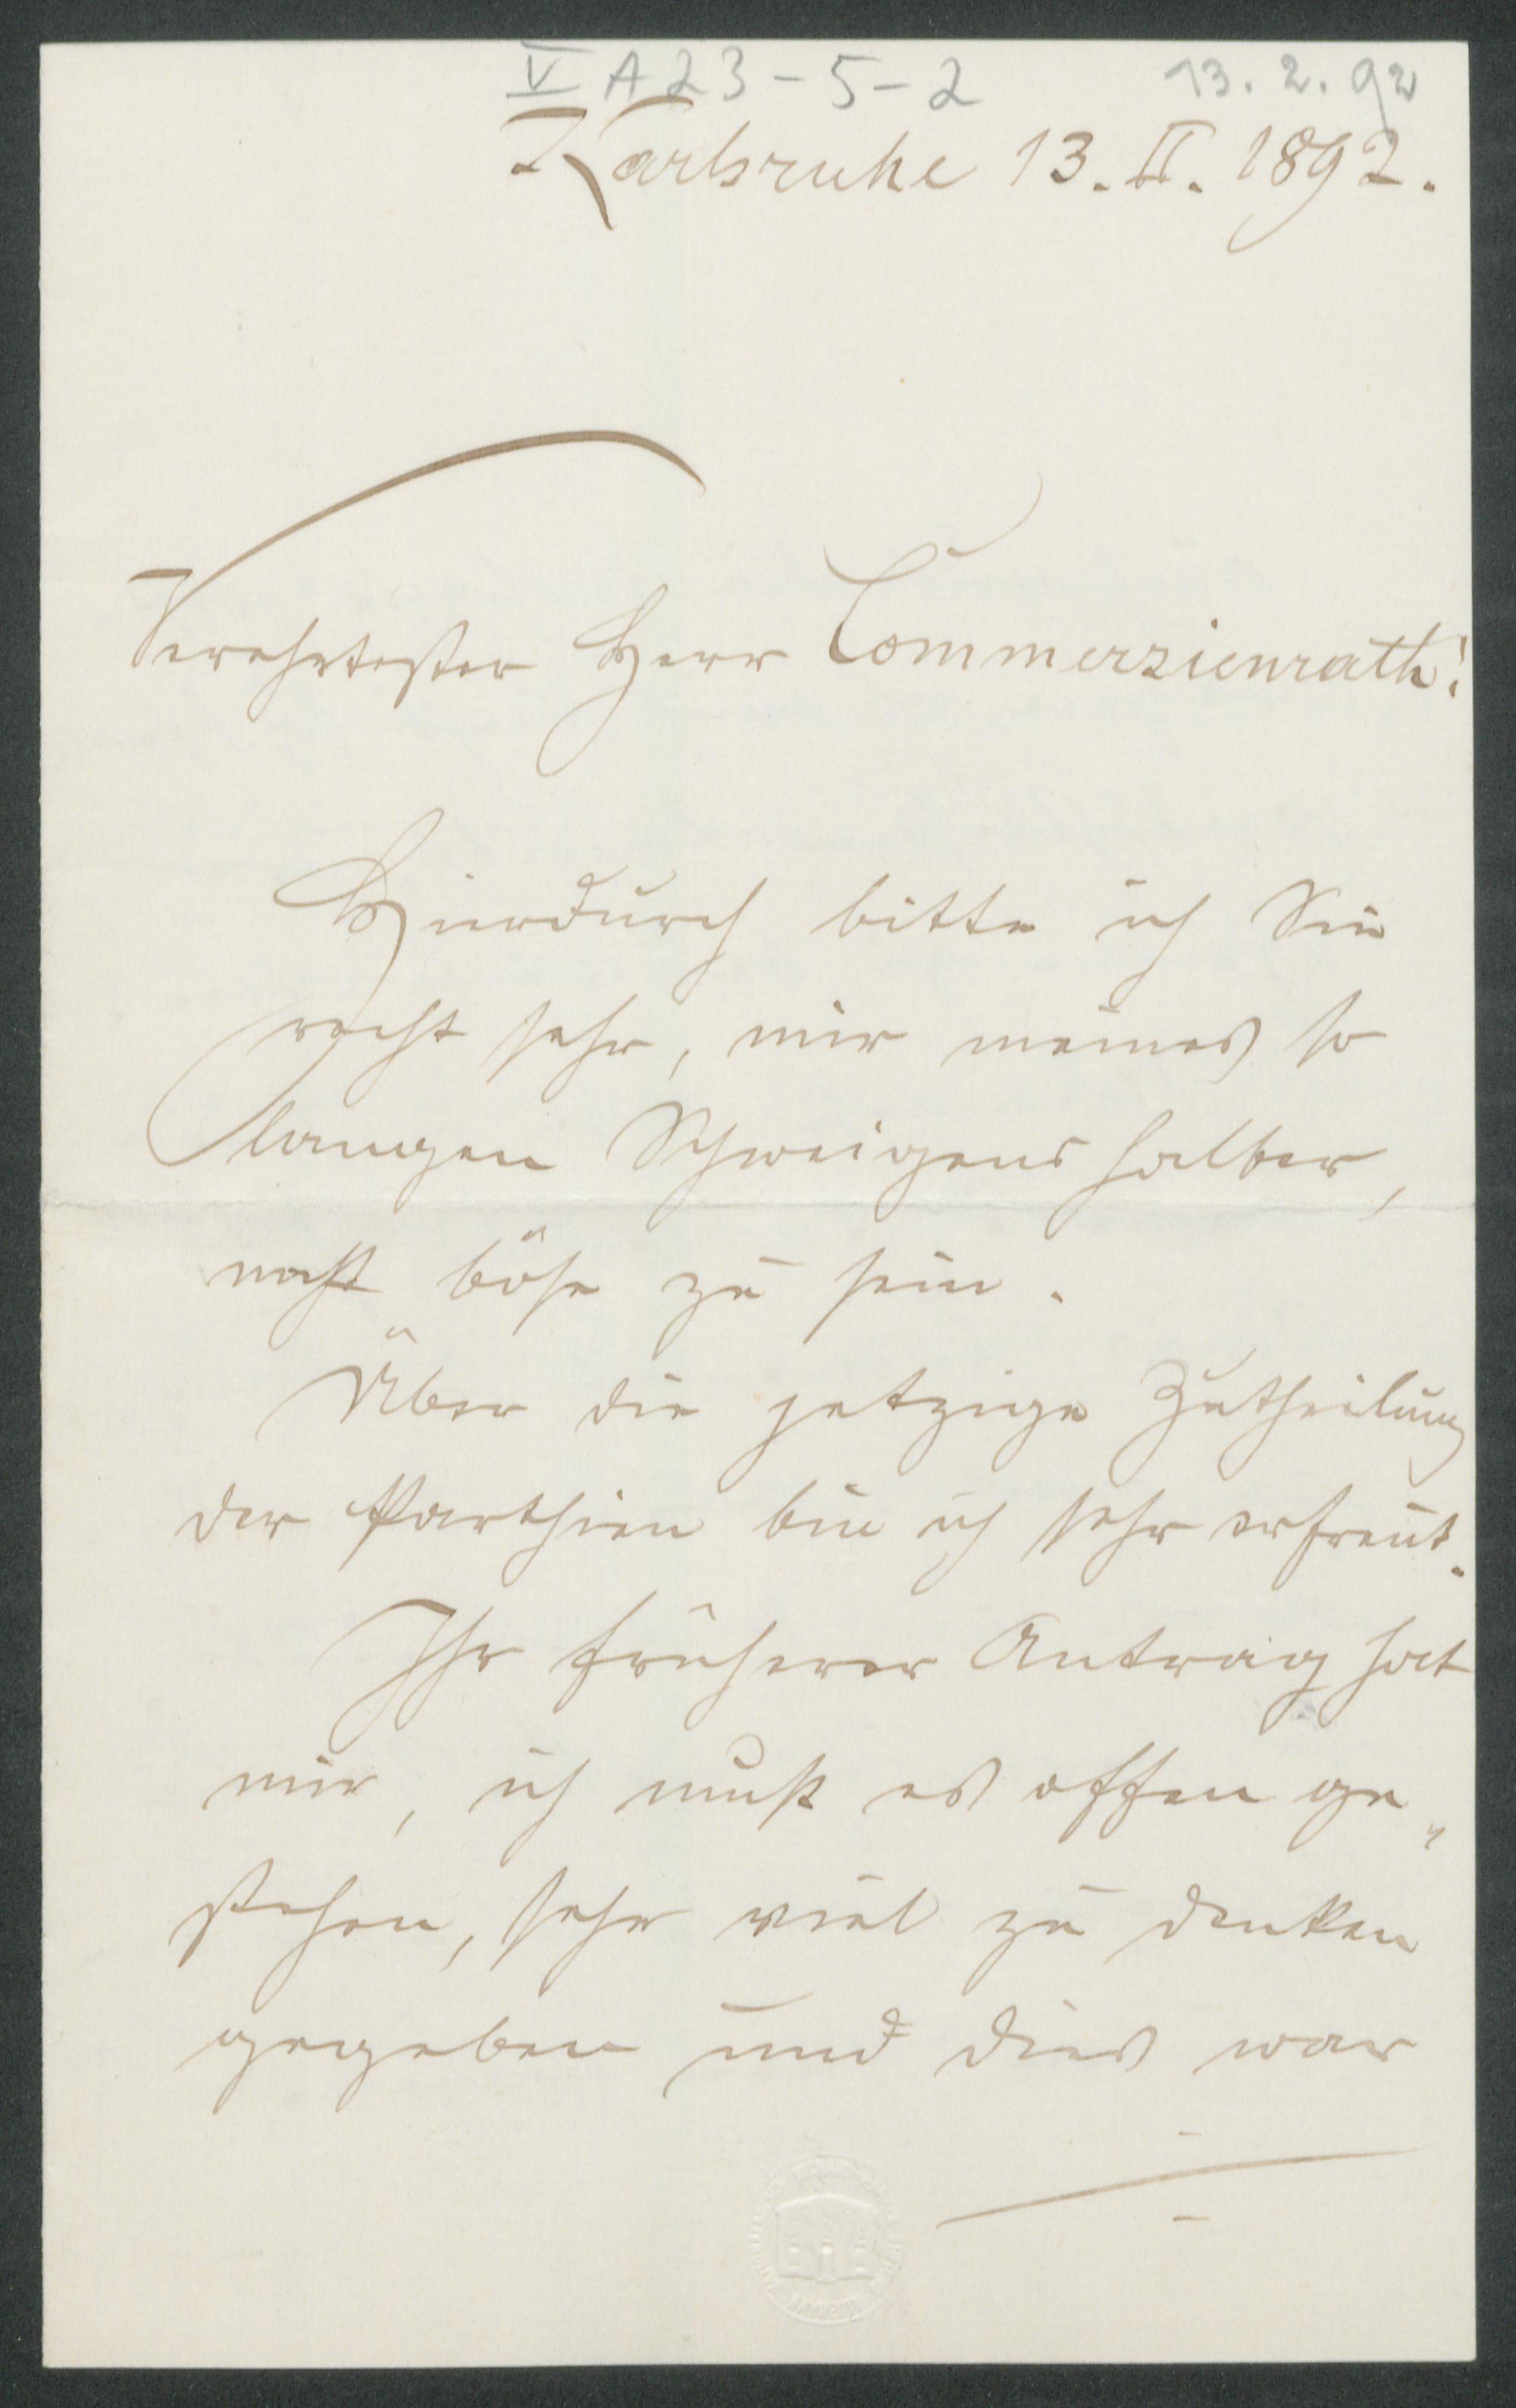 V A23-5-2 13. 2. 92
Karlsruhe 13. II. 1892.
Verehrtester Herr Commerzienrath!
Hierdurch bitte ich Sie
recht sehr, mir meines so
langen Schweigens halber,
nicht böse zu sein.
Über die jetzige Zutheilung
der Parthien bin ich sehr erfreut.
Ihr früherer Antrag hat
mir, ich muß es offen ge„
stehen, sehr viel zu denken
gegeben und dies war